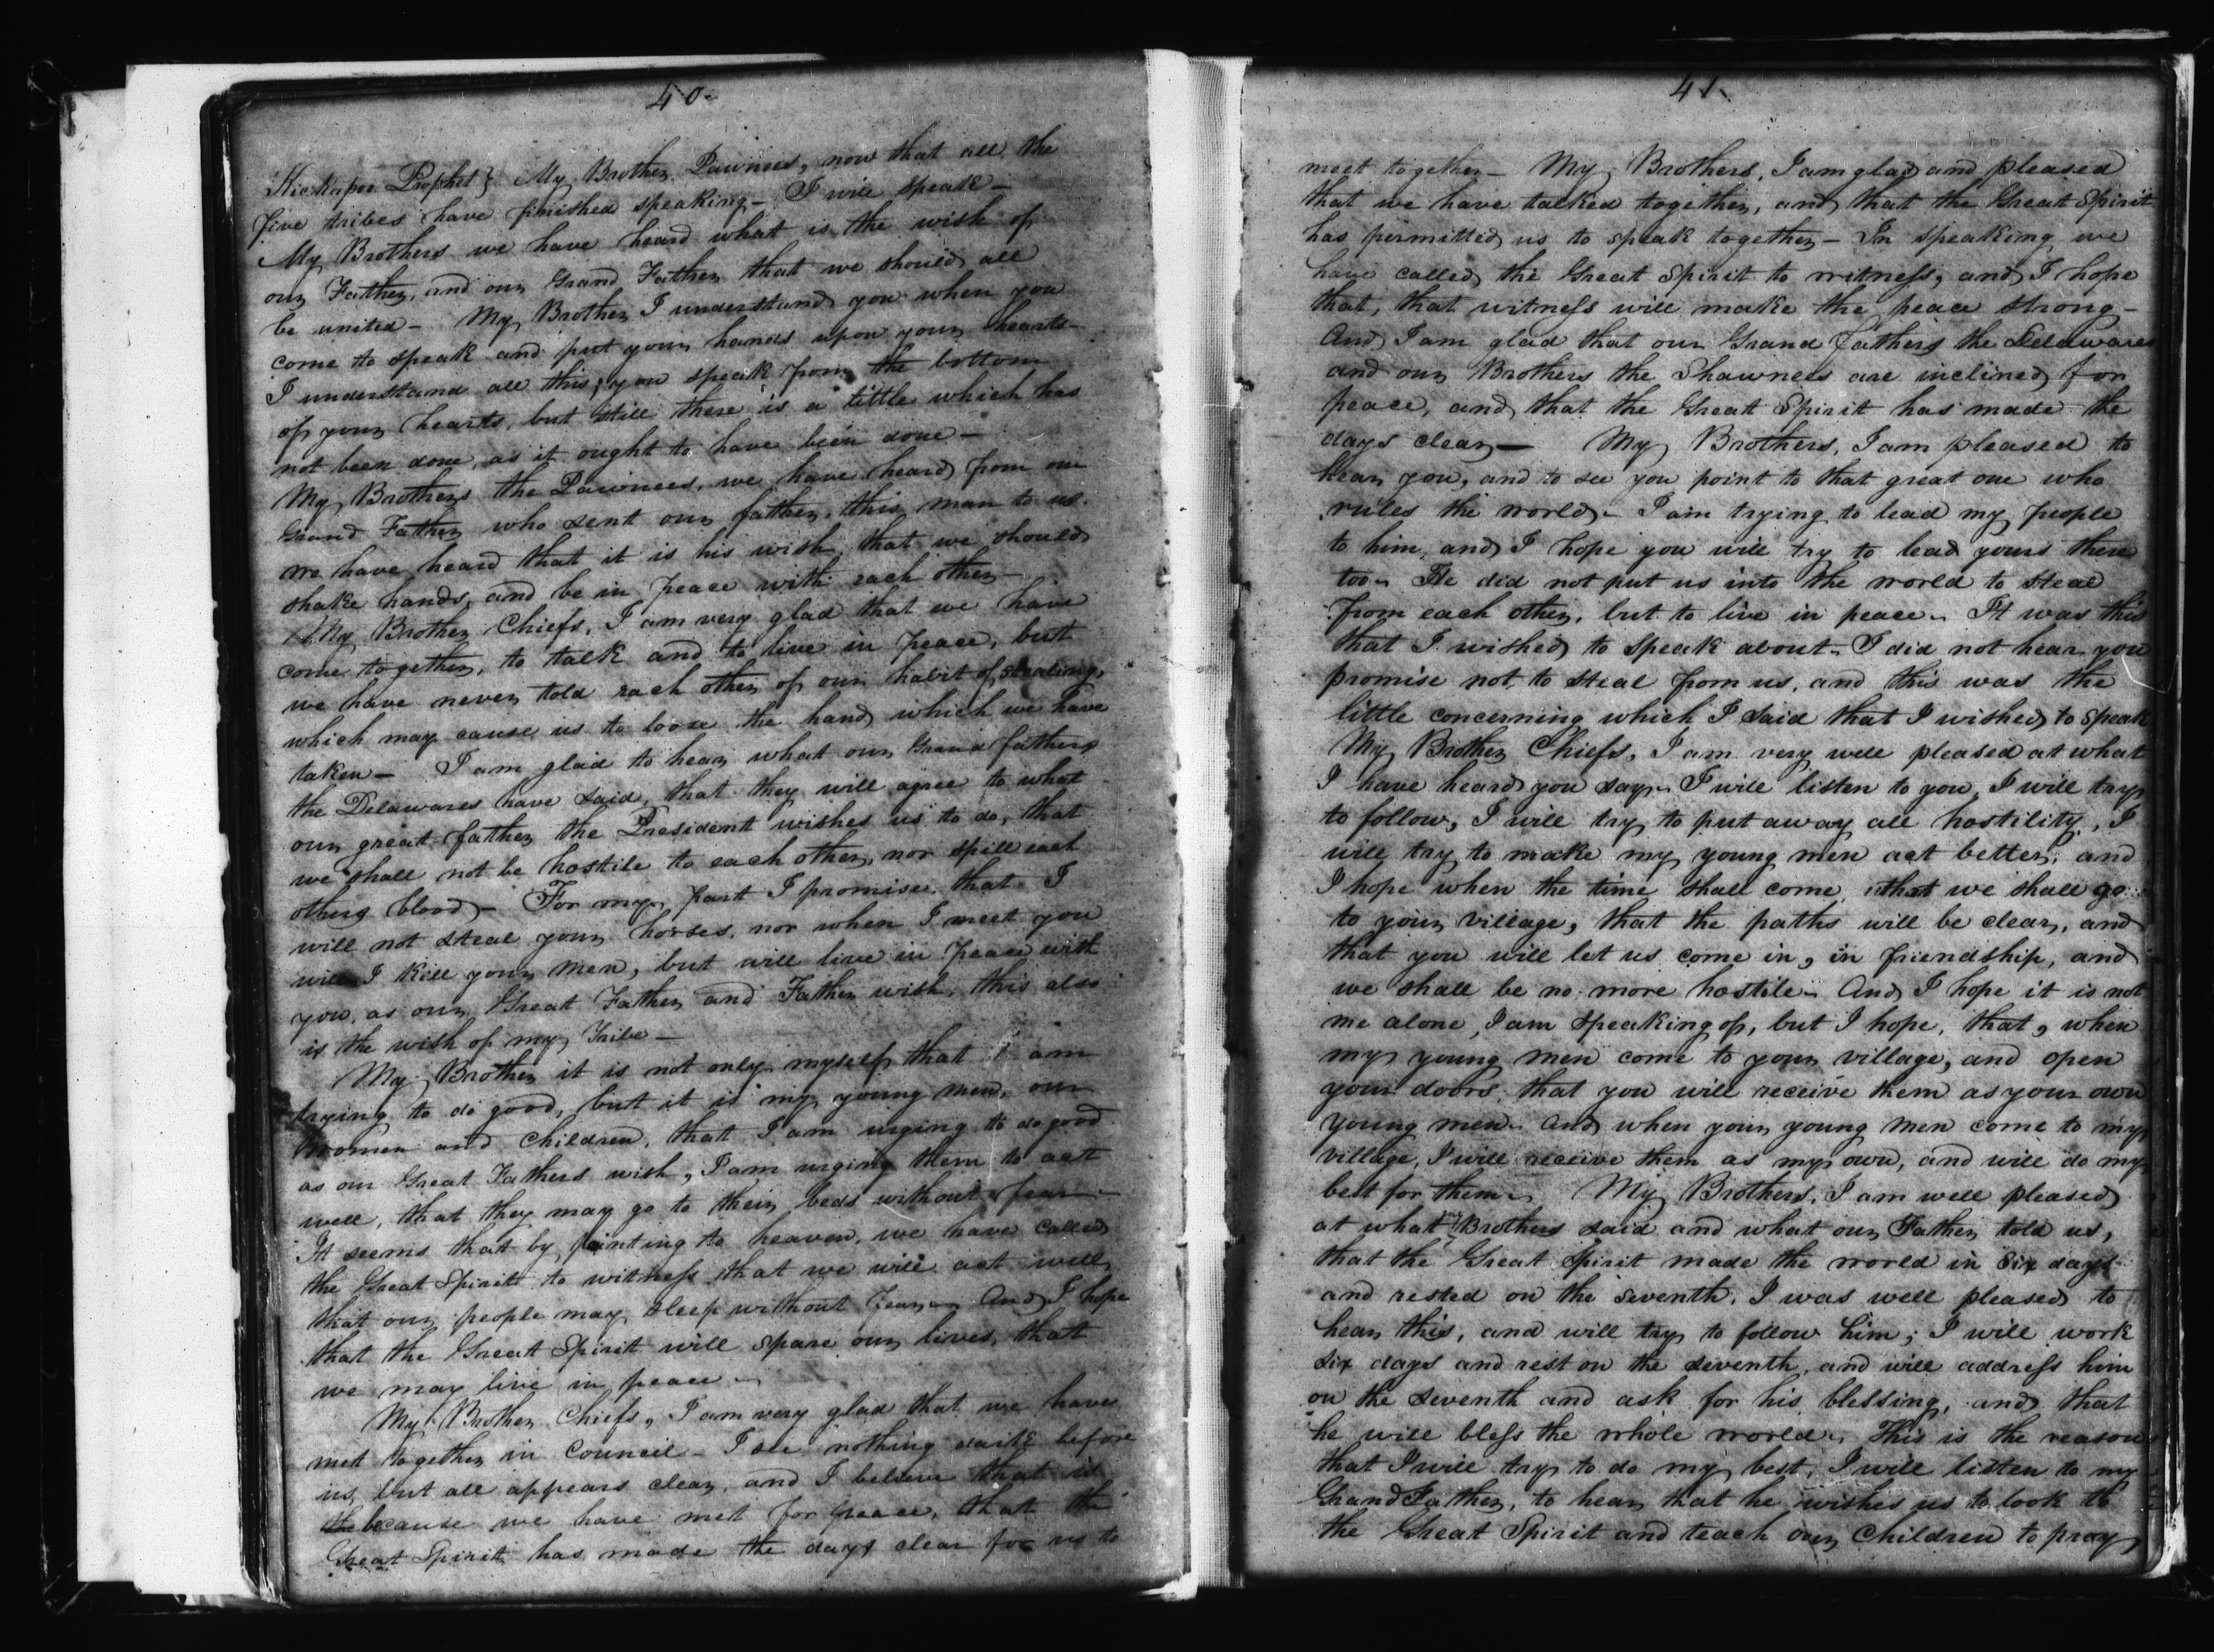 40.
Kickapoo Prophet} My Brother Pawnees, now that all the
five tribes have finished speaking - I will speak -
My Brothers we have heard what is the wish of
our Father, and our Grand Father that we should all
be united - My Brother I understand you when you
come to speak and put your hands upon your hearts -
I understand all this, you speak from the bottom
of your hearts, but still there is a little which has
not been done, as it ought to have been done -
My Brothers the Pawnees, we have heard from our
Grand Father who sent our father, this man to us.
we have heard that it is his wish, that we should
shake hands, and be in peace with each other -
My Brother Chiefs, I am very glad that we have
come together, to talk and to live in peace, but
we have never told each other of our habit of stealing,
which may cause us to loose the hand which we have
taken - I am glad to hear what our Grand fathers
the Delawares have said, that they will agree to what
our great father the President wishes us to do, that
we shall not be hostile to each other, nor spill each
others blood - For my part I promise, that I
will not steal your horses, nor when I meet you
will I kill your men, but will live in peace with
you, as our Great Father and Father wish, this also
is the wish of my Tribe -
My Brother it is not only myself that I am
trying to do good, but it is my young men, our
women and children, that I am urging to do good
as our Great Fathers wish, I am urging them to act
well, that they may go to their beds without fear -
It seems that by pointing to heaven, we have called
the Great Spirit to witness that we will act well,
that our people may sleep without fear - And I hope
that the Great Spirit will spare our lives, that
we may live in peace -
My Brother Chiefs, I am very glad that we have
met together in Council - I see nothing dark before
us, but all appears clear, and I believe that is
the because we have met for peace, that the
Great Spirit has made the days clear for us to
41.
meet together - My Brothers, I am glad and pleased
that we have talked together, and that the Great Spirit
has permitted us to speak together - In speaking we
have called the Great Spirit to witness, and I hope
that, that witness will make the peace strong -
And I am glad that our Grand fathers the Delawares
and our Brothers the Shawnees are inclined for
peace, and that the Great Spirit has made the
days clear - My Brothers, I am pleased to
hear you, and to see you point to that great one who
rules the world - I am trying to lead my people
to him, and I hope you will try to lead yours there
too - He did not put us into the world to steal
from each other, but to live in peace - It was this
that I wished to speak about - I did not hear you
promise not to steal from us, and this was the
little concerning which I said that I wished to speak
My Brother Chiefs, I am very well pleased at what
I have heard you say - I will listen to you, I will try
to follow, I will try to put away all hostility, I
will try to make my young men act better, and
I hope when the time shall come, that we shall go
to your village, that the paths will be clear, and
that you will let us come in, in friendship, and
we shall be no more hostile - And I hope it is not
me alone, I am speaking of, but I hope, that, when
my young men come to your village, and open
your doors, that you will receive them as your own
young men - And when your young men come to my
village, I will receive them as my own, and will do my
best for them - My Brothers, I am well pleased
at what my Brothers said and what our Father told us,
that the Great Spirit made the world in six days
and rested on the seventh, I was well pleased to
hear this, and will try to follow him, I will work
six days and rest on the seventh, and will address him
on the seventh and ask for his blessing, and that
he will bless the whole world - This is the reason
that I will try to do my best, I will listen to my
Grand Father, to hear that he wishes us to look to
the Great Spirit and teach our children to pray